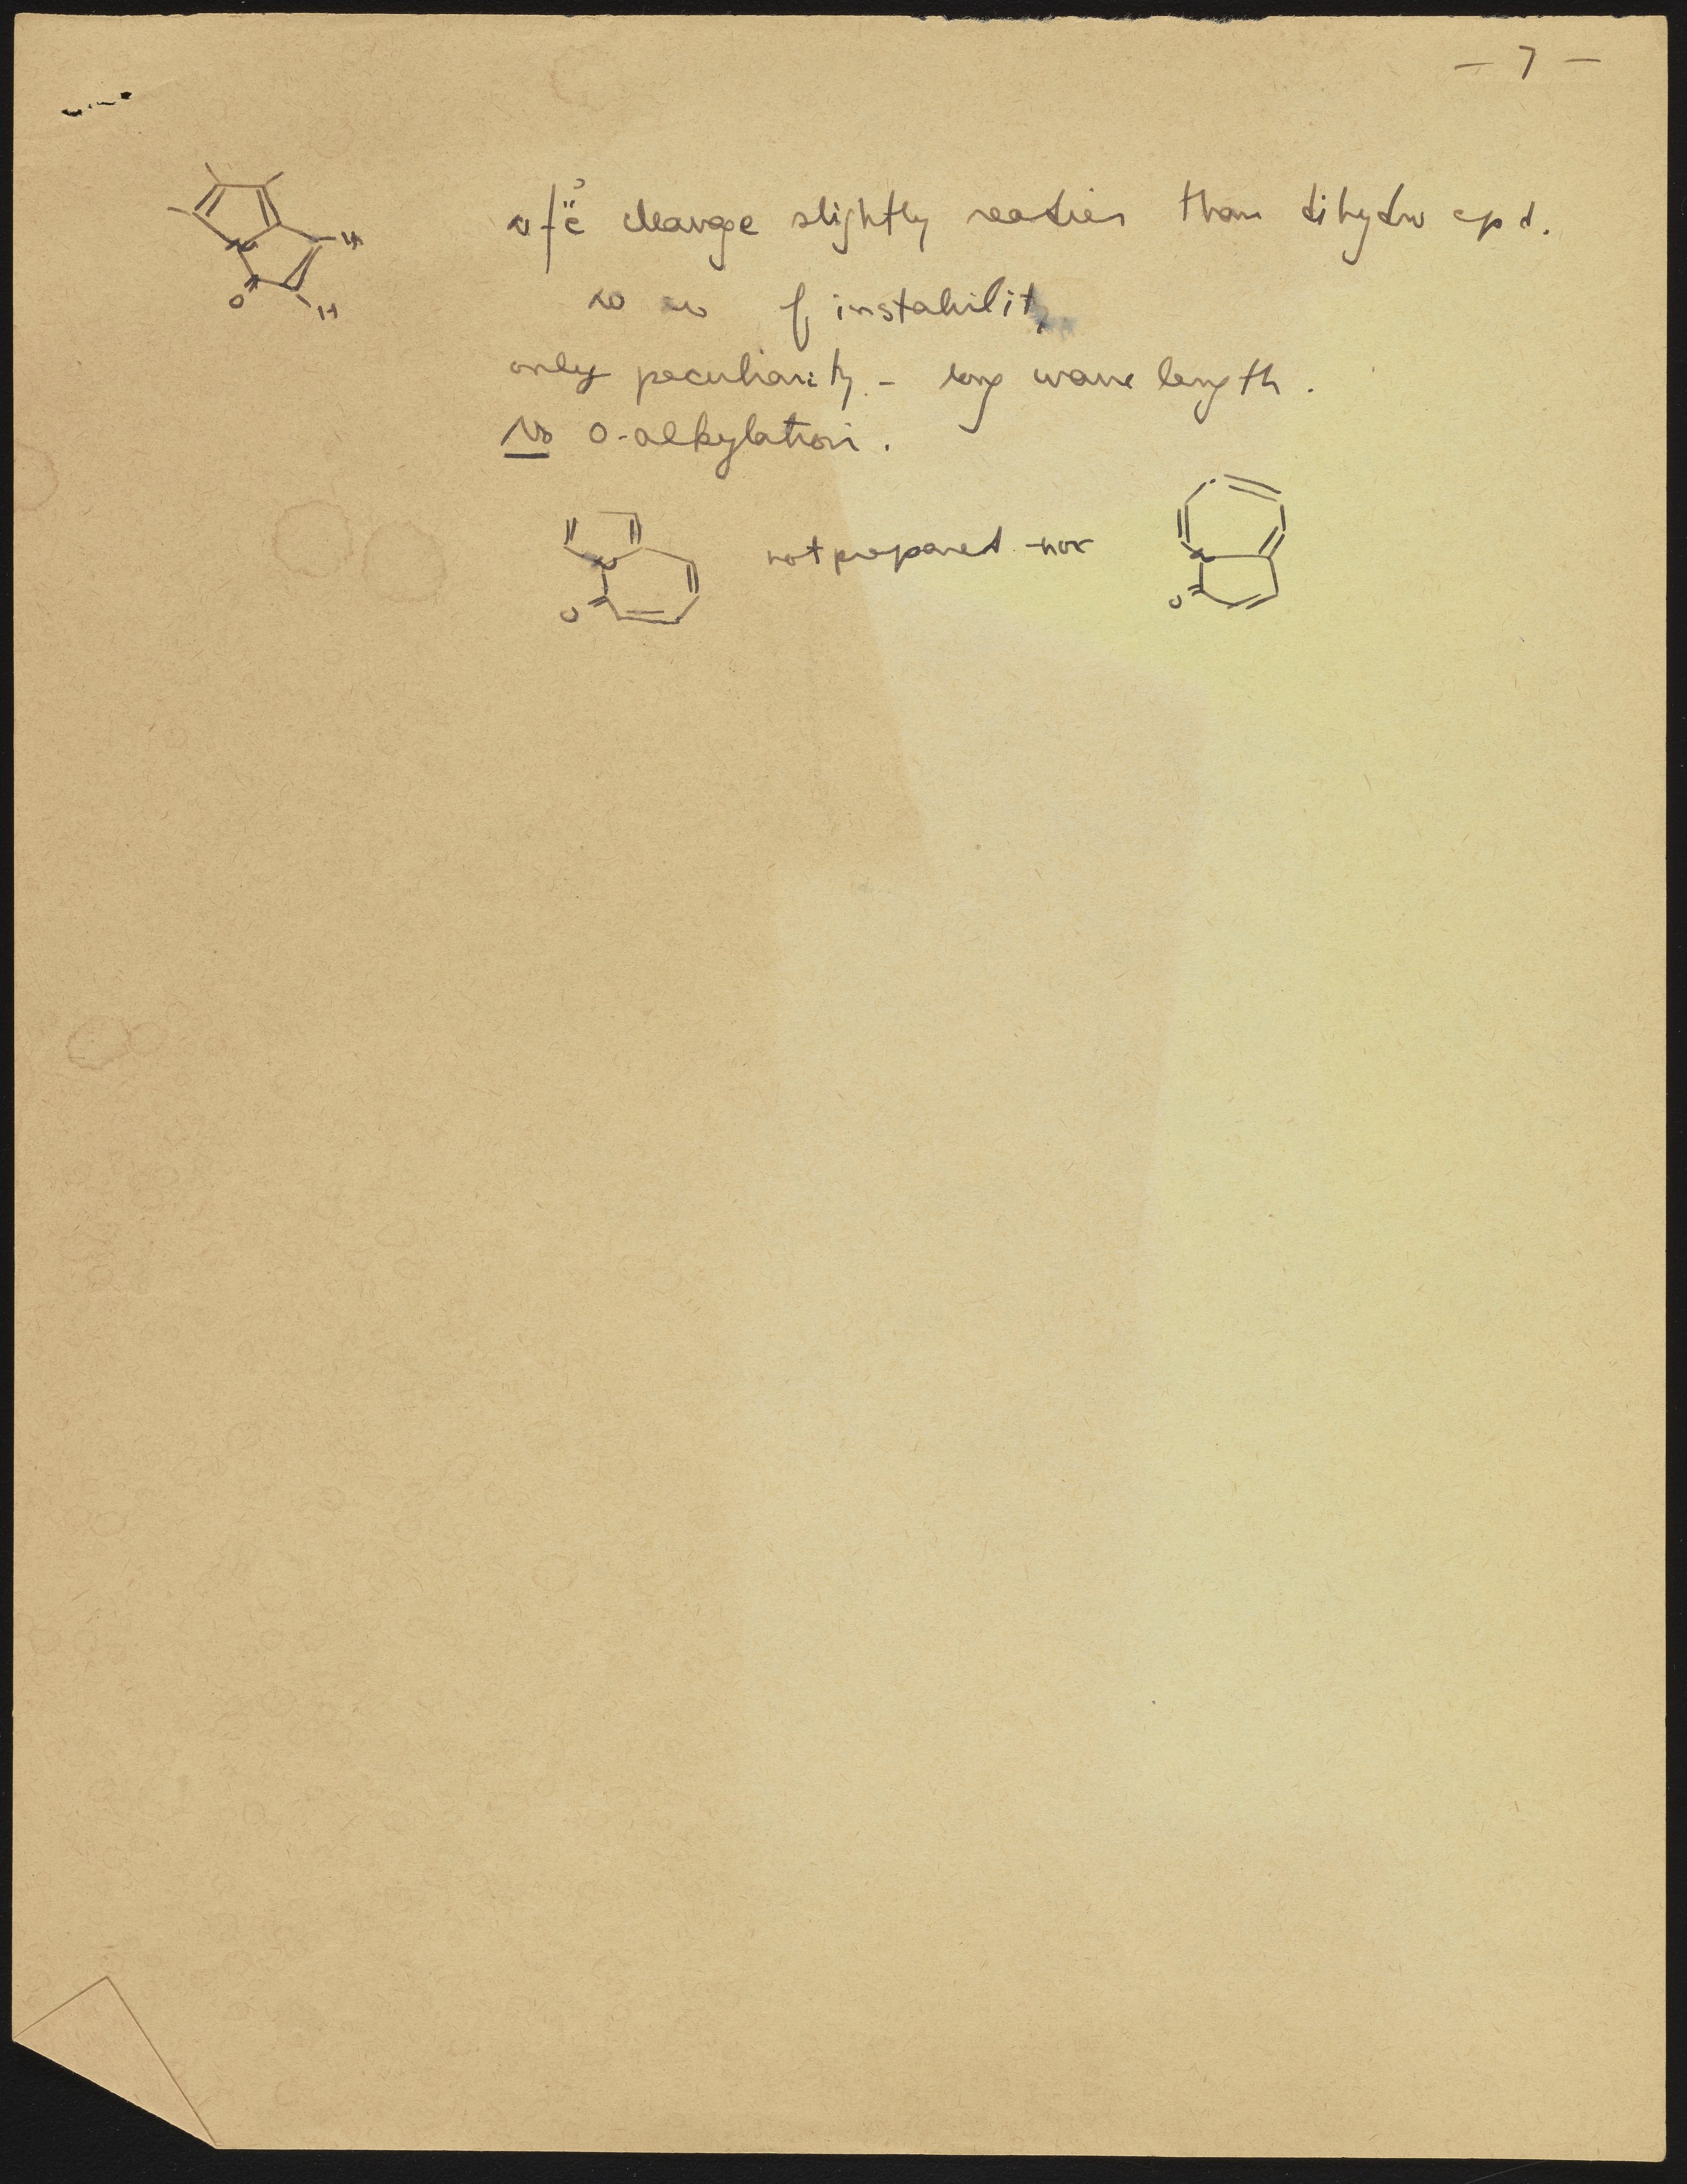 — 7 —
N C=O cleavage slightly readier than dihydro cpd.
no of instability
only peculiarity - long wave length.
No O-alkylation.
N
O
H
H
N
O
not prepared - nor
N
O